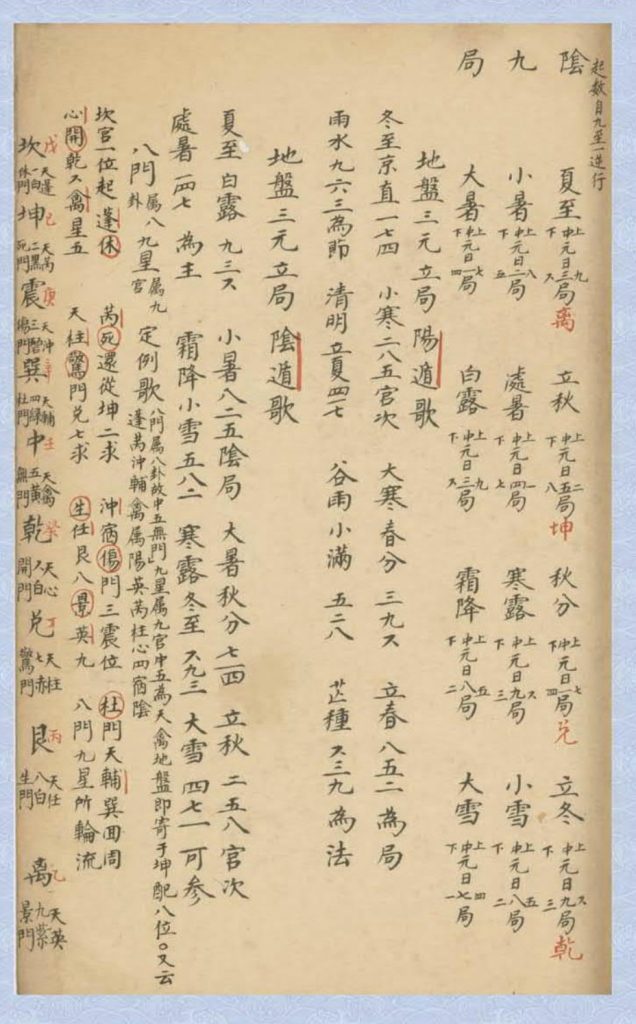 起数自九至一逆行
陰 夏至 上中下元日九三六局 离 立秋 上中下元日二五八局 坤 秋分 上中下元日七一四局 兌 立冬 上中下元日六九三局 乾
九 小暑 上中下元日八二五局 處暑 上中下元日一四七局 寒露 上中下元日六九三局 小雪 上中下元日五八二局
局 大暑 上中下元日七一四局 白露 上中下元日九三六局 霜降 上中下元日五八二局 大雪 上中下元日四七一局
地盤三元立局陽遁歌
冬至京直一七四 小寒二八五官次 大寒春分三九六 立春八五二為局
雨水九六三為節 清明立夏四一七 谷雨小滿五二八 芒種六三九為法
地盤三元立局陰遁歌
夏至白露九三六 小暑八二五陰局 大暑秋分七一四 立秋二五八官次
處暑一四七為主 霜降小雪五八二 寒露冬至六九三 大雪四七一可参
八門屬八卦九星屬九宮定例歌 八門属八卦故中五無門九星属九宫中五為天禽地盤即寄于坤配八位○又云蓬芮沖輔禽属陽英芮柱心四宿陰
坎宫一位起蓬休 芮死還從坤二求 沖宿傷門三震位 杜門天輔巽囬周
心開乾六禽星五 天柱驚門兌七求 生任艮八景英九 八門九星所輪流
坎 戊 天蓬一白休門 坤 己 天芮二黑死門 震 庚 天冲三碧傷門 巽 辛 天輔四緑杜門 中 壬 天禽五黄無門 乾 癸 天心六白開門 兌 丁 天柱七赤驚門 艮 丙 天任八白生門 离 乙 天英九紫景門